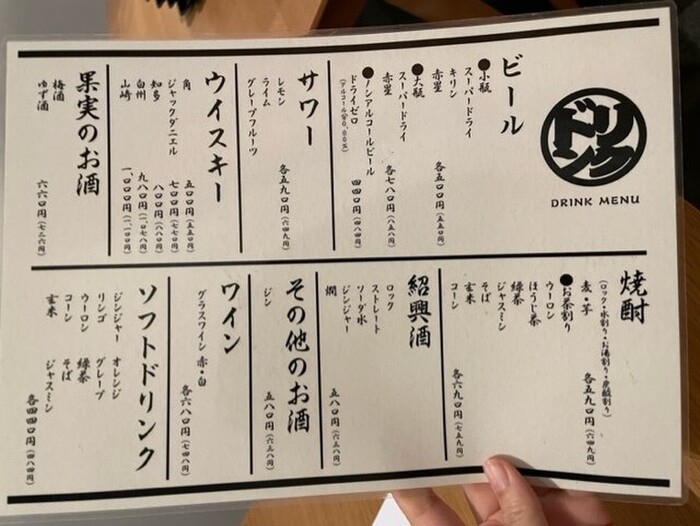 ドリンク
DRINK MENU
ビール
●小瓶
スーパードライ
キリン
赤星
各五〇〇円(五五〇円)
●大瓶
スーパードライ
赤星
各七八〇円(八五八円)
●ノンアルコールビール
ドライゼロ
(アルコール分0.00%)
四四〇円(四八四円)
サワー
レモン
ライム
グレープフルーツ
各五九〇円(六四九円)
ウイスキー
角 五〇〇円(五五〇円)
ジャックダニエル 七〇〇円(七七〇円)
知多 八〇〇円(八八〇円)
白州 九八〇円(一、〇七八円)
山崎 一、〇〇〇円(一、一〇〇円)
果実のお酒
梅酒
ゆず酒
六六〇円(七二六円)
焼酎
(ロック・水割り・お湯割り・炭酸割り)
麦・芋
各五九〇円(六四九円)
●お茶割り
ウーロン
ほうじ茶
ジャスミン
緑茶
そば
玄米
コーン
各六九〇円(七五九円)
紹興酒
ロック
ストレート
ソーダ水
ジンジャー
燗
五八〇円(六三八円)
その他のお酒
ジン
五八〇円(六三八円)
ワイン
グラスワイン 赤・白
各六八〇円(七四八円)
ソフトドリンク
ジンジャー オレンジ
リンゴ グレープ
ウーロン 緑茶
コーン そば
玄米 ジャスミン
各四四〇円(四八四円)